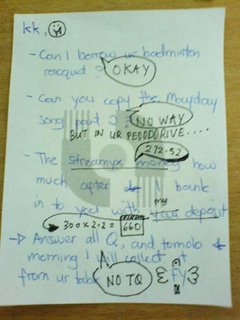 kk,
- Can I borrow ur badminton
racquet?
OKAY
- Can you copy the Mayday
song part 2
NO WAY
BUT IN UR PEDODRIVE....
272.52
- The streamyx money how
much after I bank
in to you with my
your deposit
300 x 2.2 = 660
→ Answer all Q, and tomolo
morning I will collect it
from ur table
NO TQ
FY